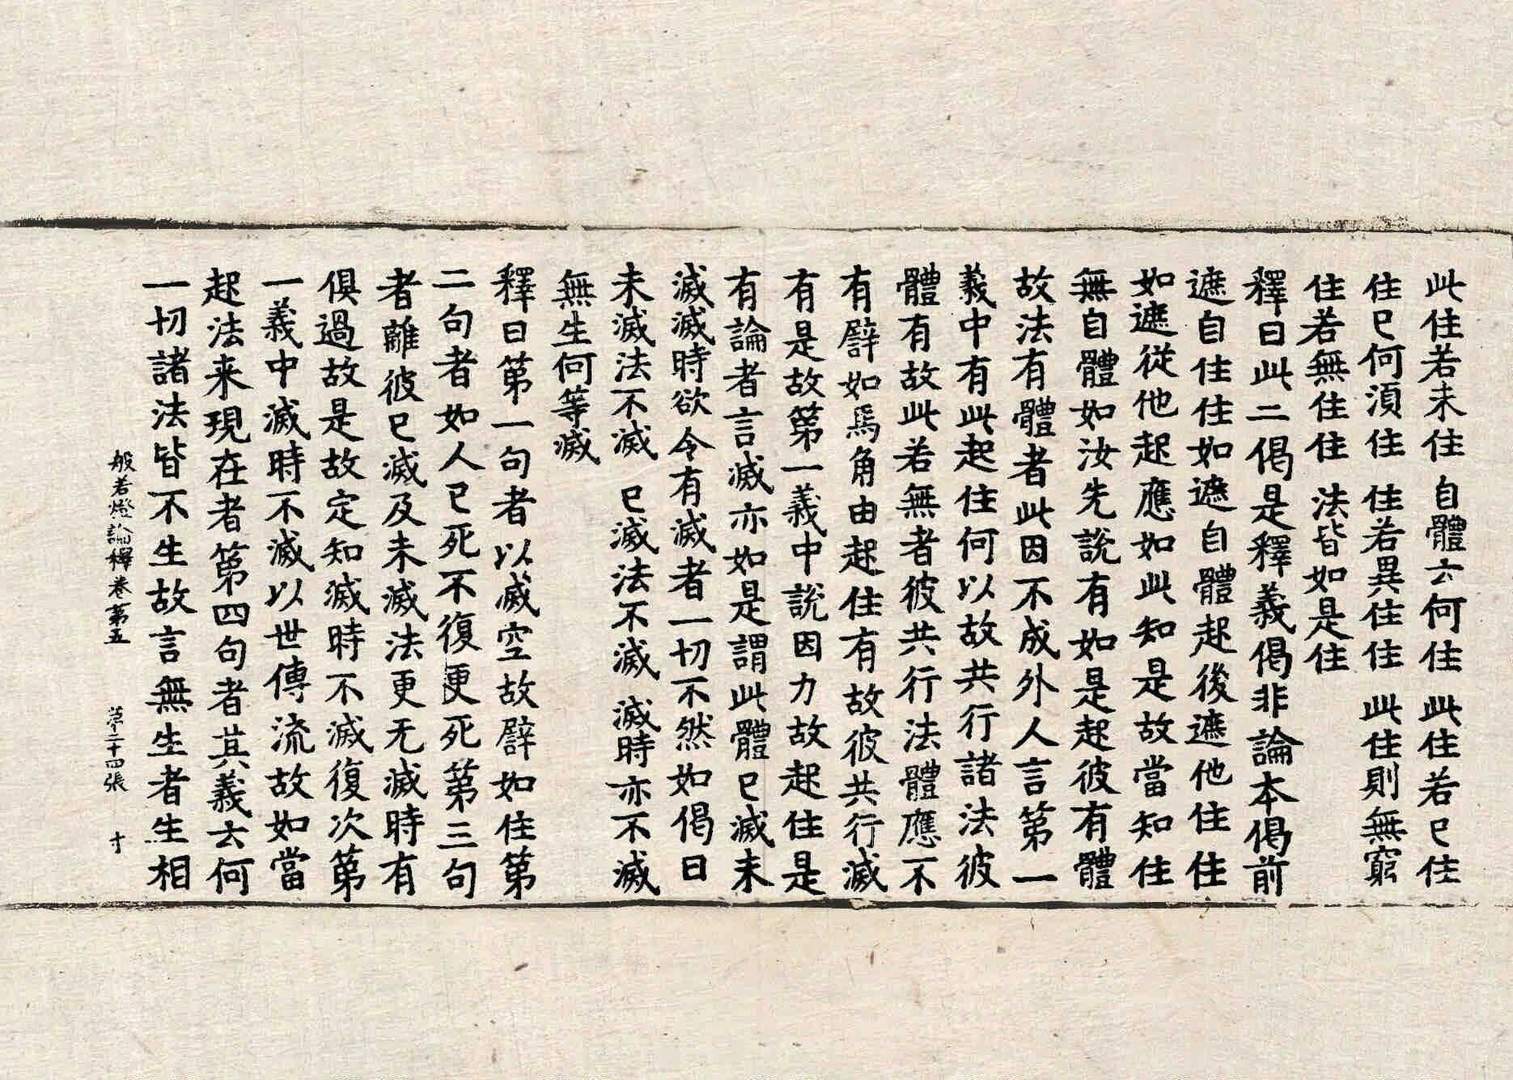 此住若未住 自體云何住 此住若已住
住已何須住 住若異住住 此住則無窮
住若無住住 法皆如是住
釋曰此二偈是釋義偈非論本偈前
遮自住住如遮自體起後遮他住住
如遮從他起應如此知是故當知住
無自體如汝先說有如是起彼有體
故法有體者此因不成外人言第一
義中有此起住何以故共行諸法彼
體有故此若無者彼共行法體應不
有譬如馬角由起住有故彼共行滅
有是故第一義中說因力故起住是
有論者言滅亦如是謂此體已滅未
滅滅時欲令有滅者一切不然如偈曰
未滅法不滅 已滅法不滅 滅時亦不滅
無生何等滅
釋曰第一句者以滅空故譬如住第
二句者如人已死不復更死第三句
者離彼已滅及未滅法更无滅時有
俱過故是故定知滅時不滅復次第
一義中滅時不滅以世傳流故如當
起法来現在者第四句者其義云何
一切諸法皆不生故言無生者生相
般若燈論釋卷第五 第二十四張 十